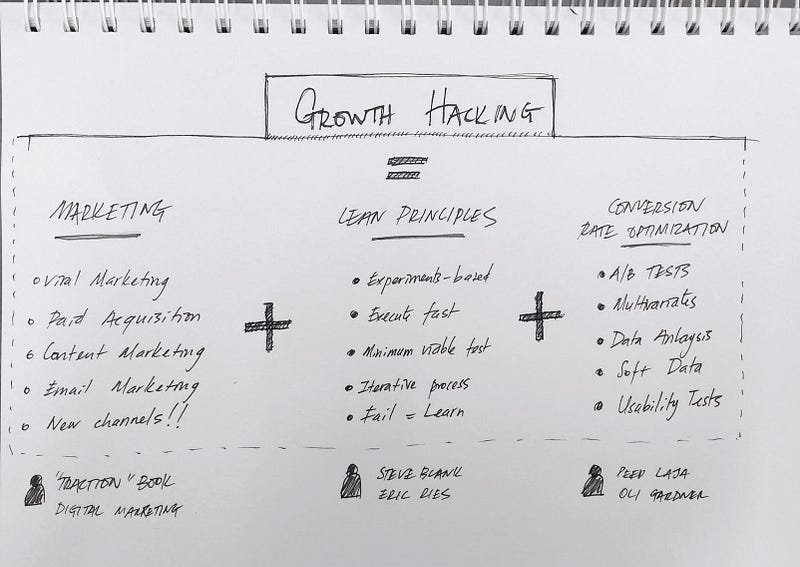 GROWTH HACKING
=
MARKETING
Viral Marketing
Paid Acquisition
Content Marketing
Email Marketing
New channels!!
+
LEAN PRINCIPLES
Experiments-based
Execute fast
Minimum viable test
Iterative process
Fail = Learn
+
CONVERSION
RATE OPTIMIZATION
A/B TESTS
Multivariates
Data Anlaysis
Soft Data
Usability Tests
"TRACTION" BOOK
DIGITAL MARKETING
STEVE BLANK
ERIC RIES
PEEP LAJA
OLI GARDNER